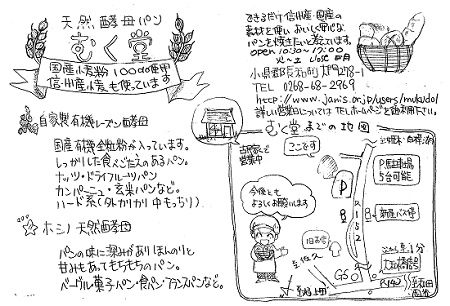 天然酵母パン
むく堂
国産小麦粉100%使用
信州産小麦も使っています
自家製有機レーズン酵母
国産有機全粒粉が入っています。
しっかりした食べごたえのあるパン。
ナッツ・ドライフルーツパン
カンパーニュ・玄米パンなど。
ハード系(外カリカリ中もっちり)
ホシノ天然酵母
パンの味に深みがありほんのりと
甘みもあってもちもちのパン。
ベーグル・菓子パン・食パン・フランスパンなど。
できるだけ信州産・国産の
素材を使いおいしく安心な
パンを焼きたいと考えています。
open 10:30~17:00
火~土 close 日月
小県郡長和町
278-1
TEL 0268-68-2969
http://www.janis.or.jp/users/mukudo/
詳しい営業日についてはTELかホームページをご覧下さい。
むく堂までの地図
古民家で
営業中
ここです
今後とも
よろしくお願いします
P
8
R152
P駐車場
5台可能
バス停
大和橋信号
GS
至佐久
至上田